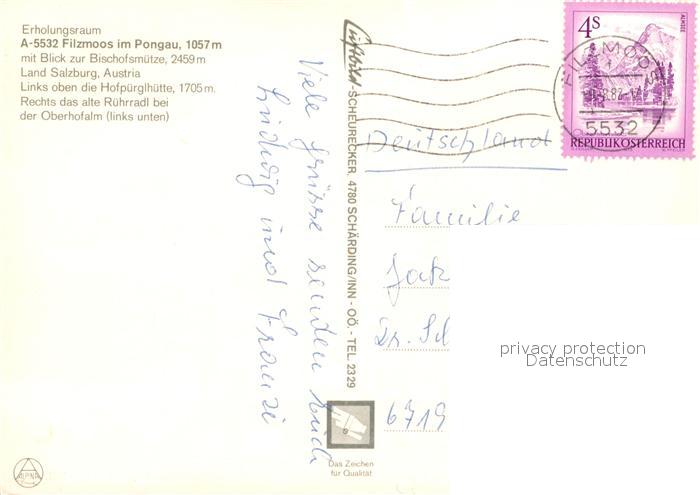 Erholungsraum
A-5532 Filzmoos im Pongau, 1057 m
mit Blick zur Bischofsmütze, 2459 m
Land Salzburg, Austria
Links oben die Hofpürglhütte, 1705 m.
Rechts das alte Rührradl bei
der Oberhofalm (links unten)
Viele Grüsse senden Euch
Ludwig und Franzi
Luftbild-SCHEURECKER, 4780 SCHÄRDING/INN - OÖ. - TEL. 2329
Das Zeichen
für Qualität
ALPINA
4 S
ALMSEE
REPUBLIK ÖSTERREICH
FILZMOOS
5532
Deutschland
Familie
Jak
Dr. Sch
6719
privacy protection
Datenschutz